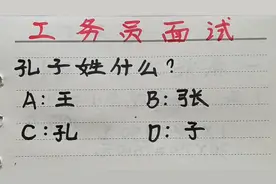 工务员面试
孔子姓什么?
A:王 B:张
C:孔 D:子